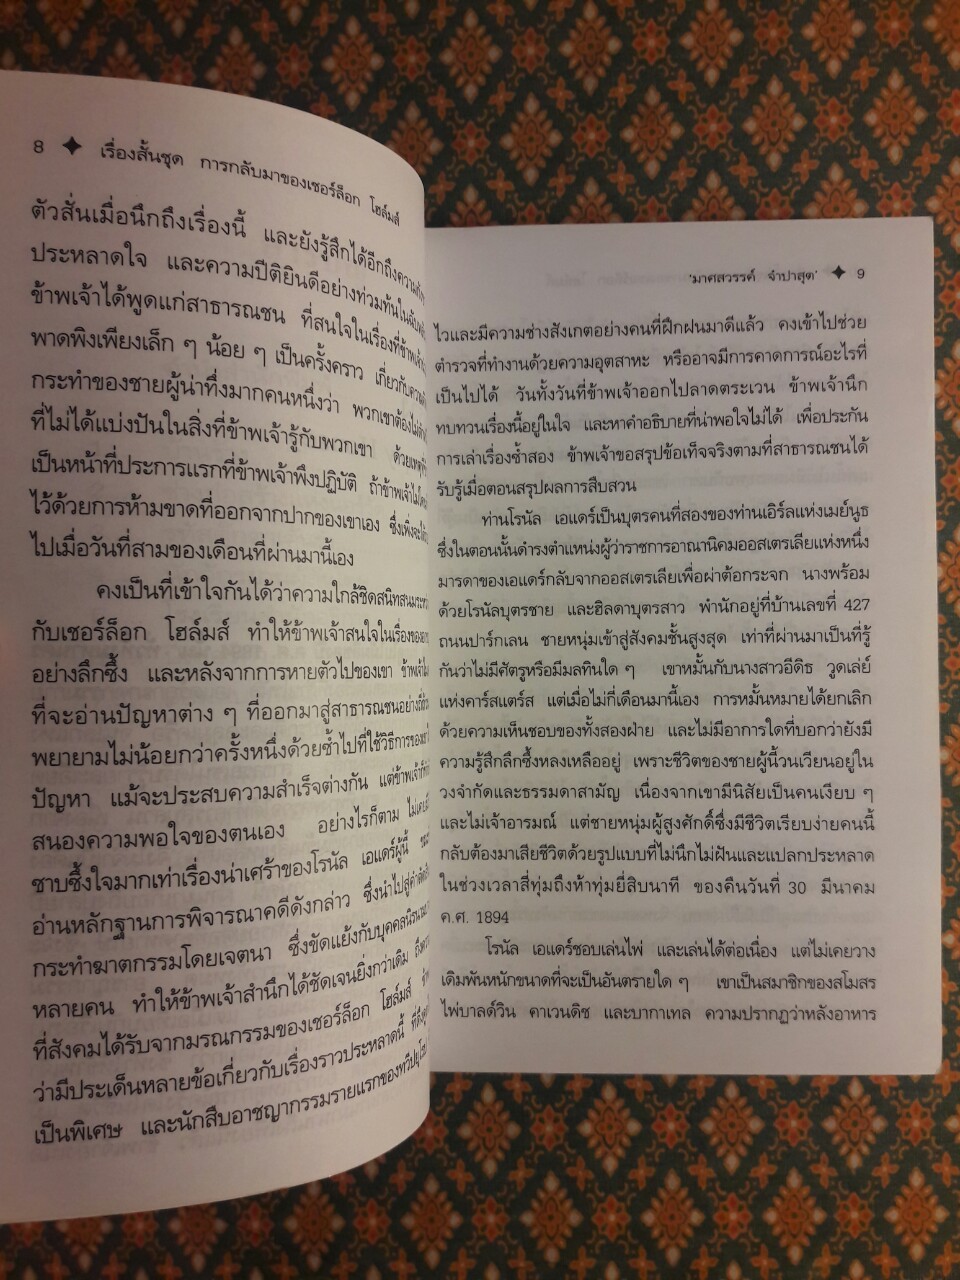 8 ✦ เรื่องสั้นชุด การกลับมาของเชอร์ล็อก โฮล์มส์
ตัวสั่นเมื่อนึกถึงเรื่องนี้ และยังรู้สึกได้อีกถึงความ
ประหลาดใจ และความปีติยินดีอย่างท่วมท้นใน
ข้าพเจ้าได้พูดแก่สาธารณชน ที่สนใจในเรื่องที่ข้าพเจ้า
พาดพิงเพียงเล็ก ๆ น้อย ๆ เป็นครั้งคราว เกี่ยวกับ
กระทำของชายผู้น่าทึ่งมากคนหนึ่งว่า พวกเขาต้องไม่
ที่ไม่ได้แบ่งปันในสิ่งที่ข้าพเจ้ารู้กับพวกเขา ด้วยเหตุ
เป็นหน้าที่ประการแรกที่ข้าพเจ้าพึงปฏิบัติ ถ้าข้าพเจ้าไม่
ไว้ด้วยการห้ามขาดที่ออกจากปากของเขาเอง ซึ่งเพิ่งจะ
ไปเมื่อวันที่สามของเดือนที่ผ่านมานี้เอง
คงเป็นที่เข้าใจกันได้ว่าความใกล้ชิดสนิทสนม
กับเชอร์ล็อก โฮล์มส์ ทำให้ข้าพเจ้าสนใจในเรื่องของ
อย่างลึกซึ้ง และหลังจากการหายตัวไปของเขา ข้าพเจ้า
ที่จะอ่านปัญหาต่าง ๆ ที่ออกมาสู่สาธารณชนอย่าง
พยายามไม่น้อยกว่าครั้งหนึ่งด้วยซ้ำไปที่ใช้วิธีการของ
ปัญหา แม้จะประสบความสำเร็จต่างกัน แต่ข้าพเจ้า
สนองความพอใจของตนเอง อย่างไรก็ตาม ไม่เคย
ซาบซึ้งใจมากเท่าเรื่องน่าเศร้าของโรนัล เอแดร์ผู้นี้
อ่านหลักฐานการพิจารณาคดีดังกล่าว ซึ่งนำไปสู่
กระทำฆาตกรรมโดยเจตนา ซึ่งขัดแย้งกับบุคคล
หลายคน ทำให้ข้าพเจ้าสำนึกได้ชัดเจนยิ่งกว่าเดิม
ที่สังคมได้รับจากมรณกรรมของเชอร์ล็อก โฮล์มส์
ว่ามีประเด็นหลายข้อเกี่ยวกับเรื่องราวประหลาดนี้
เป็นพิเศษ และนักสืบอาชญากรรมรายแรกของทวีป
'มาศสวรรค์ จำปาสุต' ✦ 9
ไวและมีความช่างสังเกตอย่างคนที่ฝึกฝนมาดีแล้ว คงเข้าไปช่วย
ตำรวจที่ทำงานด้วยความอุตสาหะ หรืออาจมีการคาดการณ์อะไรที่
เป็นไปได้ วันทั้งวันที่ข้าพเจ้าออกไปลาดตระเวน ข้าพเจ้านึก
ทบทวนเรื่องนี้อยู่ในใจ และหาคำอธิบายที่น่าพอใจไม่ได้ เพื่อประกัน
การเล่าเรื่องซ้ำสอง ข้าพเจ้าขอสรุปข้อเท็จจริงตามที่สาธารณชนได้
รับรู้เมื่อตอนสรุปผลการสืบสวน
ท่านโรนัล เอแดร์เป็นบุตรคนที่สองของท่านเอิร์ลแห่งเมย์นูธ
ซึ่งในตอนนั้นดำรงตำแหน่งผู้ว่าราชการอาณานิคมออสเตรเลียแห่งหนึ่ง
มารดาของเอแดร์กลับจากออสเตรเลียเพื่อผ่าต้อกระจก นางพร้อม
ด้วยโรนัลบุตรชาย และฮิลดาบุตรสาว พำนักอยู่ที่บ้านเลขที่ 427
ถนนปาร์กเลน ชายหนุ่มเข้าสู่สังคมชั้นสูงสุด เท่าที่ผ่านมาเป็นที่รู้
กันว่าไม่มีศัตรูหรือมีมลทินใด ๆ เขาหมั้นกับนางสาวอีดิธ วูดเล่ย์
แห่งคาร์สแตร์ส แต่เมื่อไม่กี่เดือนมานี้เอง การหมั้นหมายได้ยกเลิก
ด้วยความเห็นชอบของทั้งสองฝ่าย และไม่มีอาการใดที่บอกว่ายังมี
ความรู้สึกลึกซึ้งหลงเหลืออยู่ เพราะชีวิตของชายผู้นี้วนเวียนอยู่ใน
วงจำกัดและธรรมดาสามัญ เนื่องจากเขามีนิสัยเป็นคนเงียบ ๆ
และไม่เจ้าอารมณ์ แต่ชายหนุ่มผู้สูงศักดิ์ซึ่งมีชีวิตเรียบง่ายคนนี้
กลับต้องมาเสียชีวิตด้วยรูปแบบที่ไม่นึกไม่ฝันและแปลกประหลาด
ในช่วงเวลาสี่ทุ่มถึงห้าทุ่มยี่สิบนาที ของคืนวันที่ 30 มีนาคม
ค.ศ. 1894
โรนัล เอแดร์ชอบเล่นไพ่ และเล่นได้ต่อเนื่อง แต่ไม่เคยวาง
เดิมพันหนักขนาดที่จะเป็นอันตรายใด ๆ เขาเป็นสมาชิกของสโมสร
ไพ่บาลด์วิน คาเวนดิช และบากาเทล ความปรากฏว่าหลังอาหาร